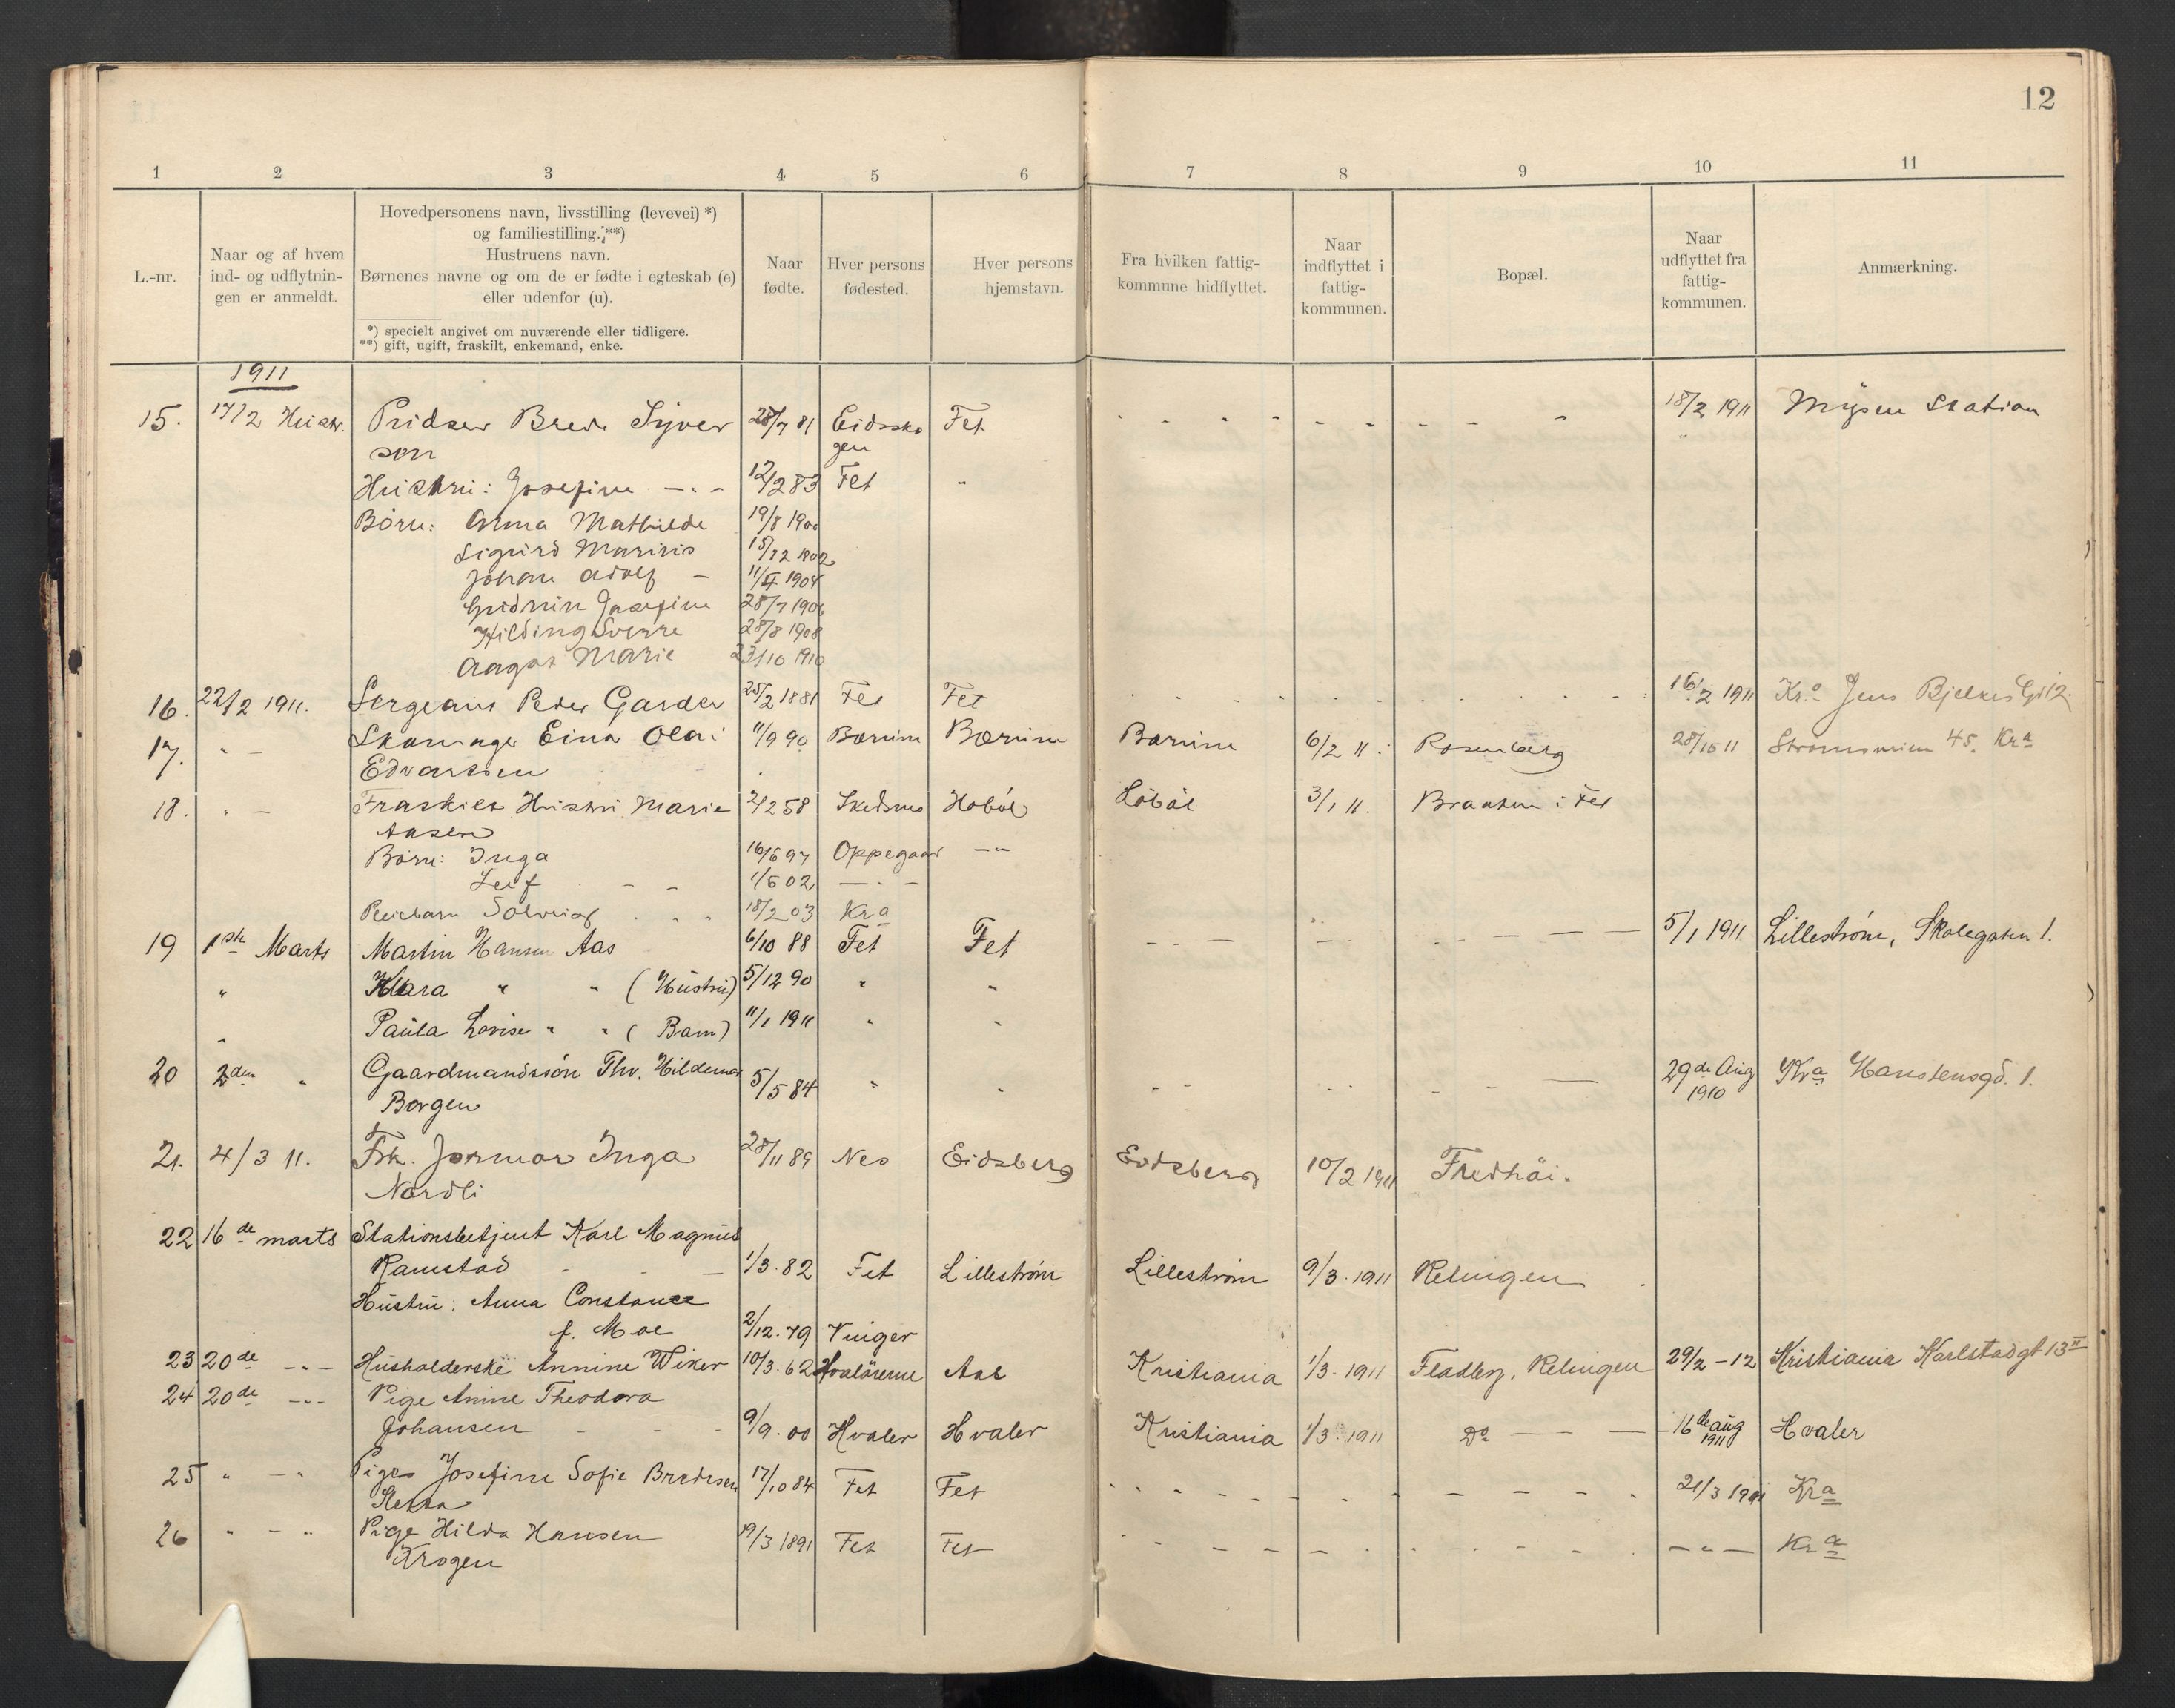 12
1 2 3 4 5 6 7 8 9 10 11
L.-nr.
Naar og af hvem
ind- og udflytnin-
gen er anmeldt.
Hovedpersonens navn, livsstilling (levevei) *)
og familiestilling. **)
Hustruens navn.
Børnenes navne og om de er fødte i egteskab (e)
eller udenfor (u).
*) specielt angivet om nuværende eller tidligere.
**) gift, ugift, fraskilt, enkemand, enke.
Naar
fødte.
Hver persons
fødested.
Hver persons
hjemstavn.
Fra hvilken fattig-
kommune hidflyttet.
Naar
indflyttet i
fattig-
kommunen.
Bopæl.
Naar
udflyttet fra
fattig-
kommunen.
Anmærkning.
1911
15. 17/2 Hustr. Brede Syver 28/7 81 Eidssko Fet 18/2 1911 Mysen Station
sen gen
Hustru: Josefine - " - 12/2 83 Fet "
Børn: Anna Mathilde 19/8 1900
Sigurd Marius 15/12 1902
Johan Adolf - 11/4 1904
Gudrun Josefine 28/7 1906
Hilding Sverre 28/8 1908
Aagot Marie 23/10 1910
16. 22/2 1911. Sergeant Peder Garder 25/2 1881 Fet Fet 16/2 1911 Kr.a Jens Bjelkes Gt 12.
17. " - Skomager Einar Olai 11/9 90 Bærum Bærum Bærum 6/2 11. Rosenberg 28/10 11 Strømsveien 45. Kra
Edvardsen
18. " - Fraskilt Hustru Marie 2/2 58 Skedsmo Hobøl Hobøl 3/1 11. Braaten i Fet
Aasen
Børn: Inga 16/6 97 Oppegaard - " -
Leif - - 1/5 02 - " -
Pleiebarn Solveig 18/2 03 Kra
19 1ste Marts Martin Hansen Aas 6/10 88 Fet Fet 5/1 1911 Lillestrøm, Skolegaten 1.
" Klara " " (Hustru) 5/12 90 " "
" Paula Lovise " " (Barn) 11/1 1911 " "
20 2den " Gaardmandssøn Thv. Hildemar 5/5 84 " " 29de Aug Kra Hanstensgd. 1.
Borgen 1910
21. 4/3 11. Frk. Inga 28/11 89 Nes Eidsberg Eidsberg 10/2 1911 Fredhöi.
Nordli
22 16de marts Stationsbetjent Karl Magnus
Ramstad - - 1/3. 82 Fet Lillestrøm Lillestrøm 9/3. 1911 Relingen
Hustru: Anna Constance
f. Moe 2/12. 79 Vinger
23 20de - " - Husholderske Annine Wiker 10/3. 62 Hvalörerne Aal Kristiania 1/3. 1911 Fladbg, Relingen 29/2 - 12 Kristiania Karlstadgt 13 II
24 20de - " - Pige Anine Theodora
Johansen - - - 9/9. 00 Hvaler Hvaler Kristiania 1/3. 1911 Do 16de aug 1911 Hvaler
25 " - " Pige Josefine Sofie Bredesen 17/10 84 Fet Fet 21/3 1911 Kra
Sletta
26 " - " Pige Hilda Hansen 19/3 1891 Fet Fet - " - Kra
Krogen